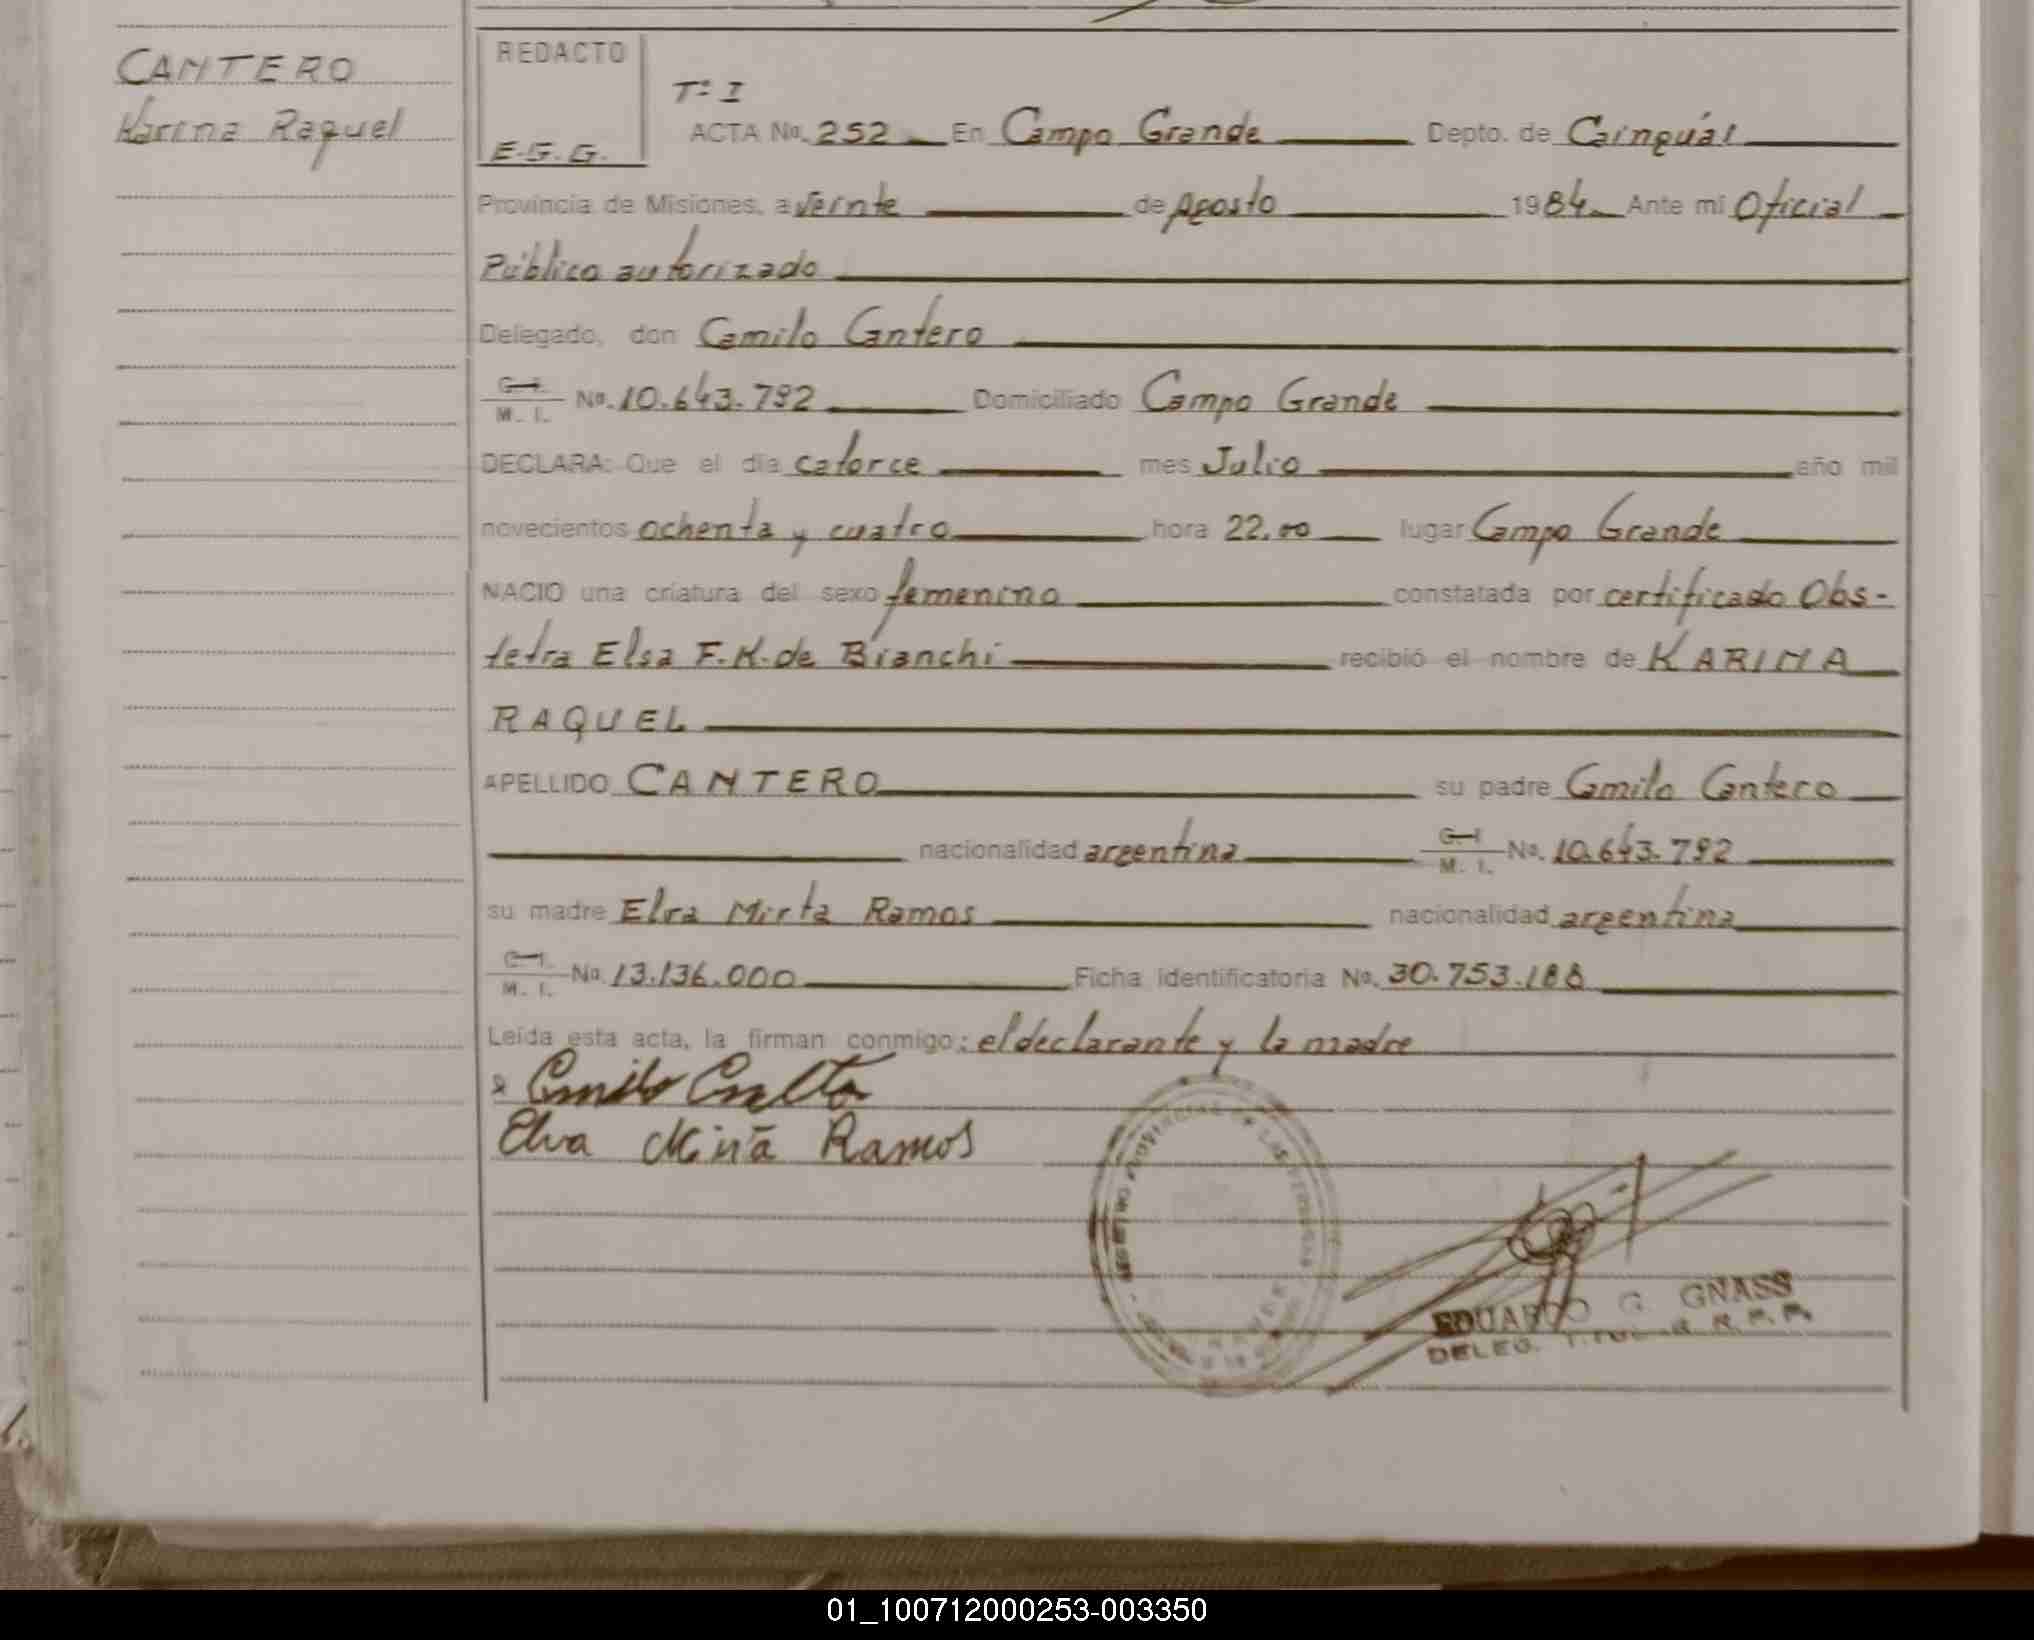 CANTERO
Karina Raquel
REDACTO
E.G.G.
Tº I
ACTA No. 252 En Campo Grande Depto. de Cainguás
Provincia de Misiones, a veinte de Agosto 1984 Ante mí Oficial
Público autorizado
Delegado, don Camilo Cantero
C. I.
M. I. No. 10.643.792 Domiciliado Campo Grande
DECLARA: Que el día catorce mes Julio año mil
novecientos ochenta y cuatro hora 22,00 lugar Campo Grande
NACIO una criatura del sexo femenino constatada por certificado Obs-
tetra Elsa F.K. de Bianchi recibió el nombre de KARINA
RAQUEL
APELLIDO CANTERO su padre Camilo Cantero
nacionalidad argentina C. I. M. I. No. 10.643.792
su madre Elva Mirta Ramos nacionalidad argentina
C. I.
M. I. No. 13.136.000 Ficha identificatoria No. 30.753.188
Leída esta acta, la firman conmigo: el declarante y la madre
Camilo
Elva Mirta Ramos
EDUARDO G. GNASS
DELEG. TITULAR R.P.P.
01_100712000253-003350